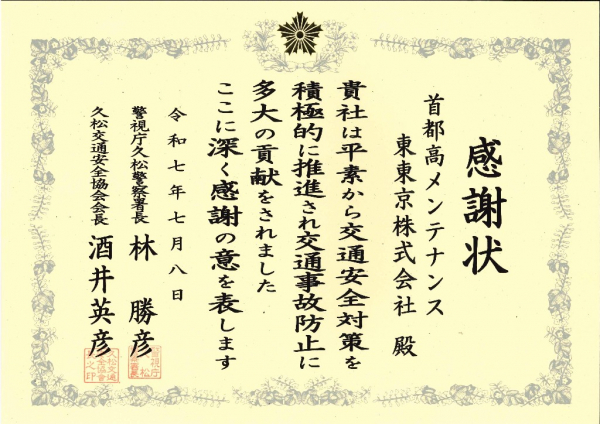 感謝状
首都高メンテナンス
東東京株式会社 殿
貴社は平素から交通安全対策を
積極的に推進され交通事故防止に
多大の貢献をされました
ここに深く感謝の意を表します
令和七年七月八日
警視庁久松警察署長 林 勝彦
久松交通安全協会会長 酒井英彦